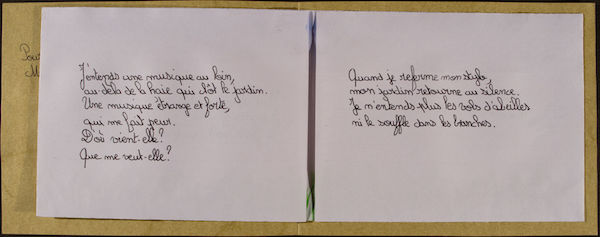 Pour
J'entends une musique au loin,
au-delà de la haie qui clôt le jardin.
Une musique étrange et forte,
qui me fait peur.
D'où vient-elle?
Que me veut-elle?
Quand je referme mon stylo,
mon jardin retourne au silence.
Je n'entends plus les vols d'abeilles
ni le souffle dans les branches.